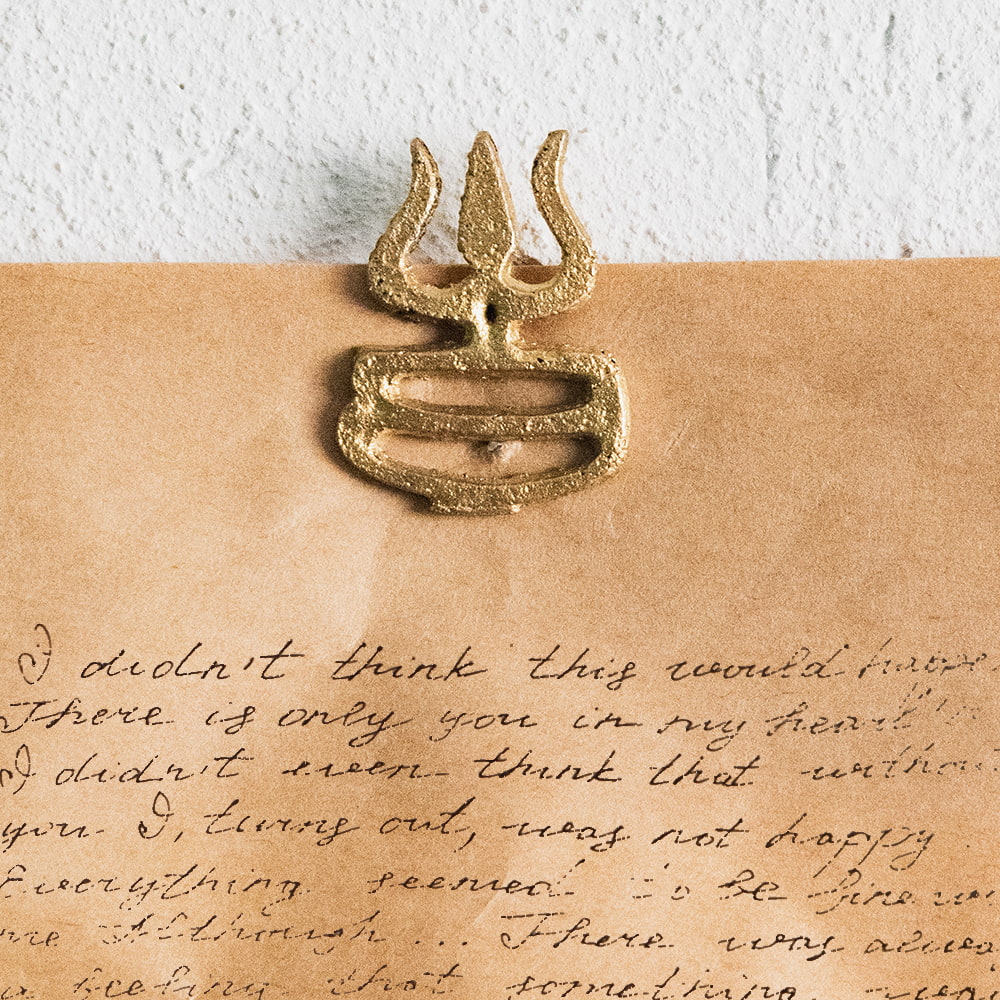 I didn't think this would happe
There is only you in my heart
I didn't even think that withou
you. I, turns out, was not happy.
Everything seemed to be fine wi
me Although ... There was alway
a feeling that something was